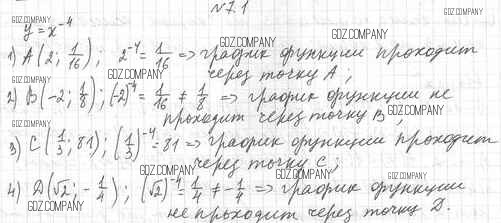 №7.1
GDZ.COMPANY GDZ.COMPANY
y = x⁻⁴ GDZ.COMPANY
1) A(2; 1/16); 2⁻⁴ = 1/16 => график функции проходит
GDZ.COMPANY
через точку A;
GDZ.COMPANY GDZ.COMPANY
2) B(-2; 1/8); (-2)⁻⁴ = 1/16 ≠ 1/8 => график функции не
проходит через точку B;
GDZ.COMPANY GDZ.COMPANY
3) C(1/3; 81); (1/3)⁻⁴ = 81 => график функции проходит
GDZ.COMPANY
через точку C;
GDZ.COMPANY GDZ.COMPANY
4) D(√2; -1/4); (√2)⁻⁴ = 1/4 ≠ -1/4 => график функции
не проходит через точку D.
GDZ.COMPANY GDZ.COMPANY